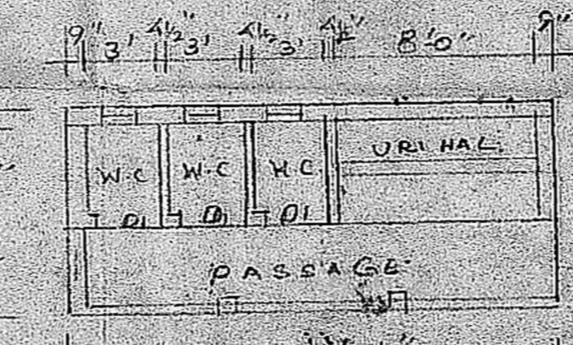 9" 3' 4½" 3' 4½" 3' 4½" 8'-0" 9"
W.C W.C W.C URINAL
D1 D1 D1
PASSAGE